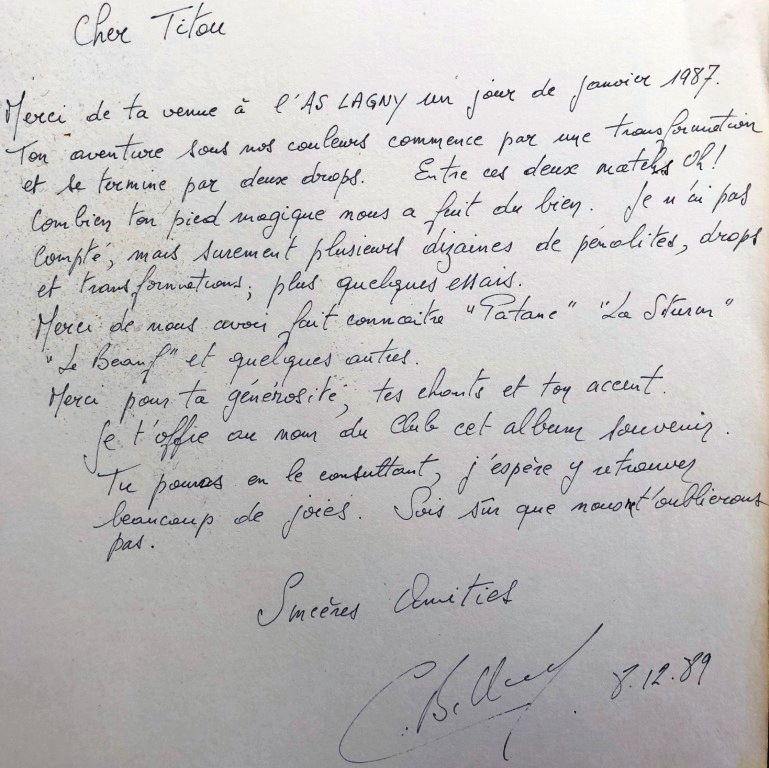 Cher Titou
Merci de ta venue à l'AS LAGNY un jour de janvier 1987.
Ton aventure sous nos couleurs commence par une transformation
et se termine par deux drops. Entre ces deux matchs Oh!
Combien ton pied magique nous a fait du bien. Je n'ai pas
compté, mais surement plusieurs dizaines de pénalites, drops
et transformations, plus quelques essais.
Merci de nous avoir fait connaitre "Patane" "La
"Le Beauf" et quelques autres.
Merci pour ta générosité, tes chants et ton accent.
Je t'offre au nom du Club cet album souvenir.
Tu pourras en le consultant, j'espère y retrouver
beaucoup de joies. Sois sûr que nous t'oublierons
pas.
Sincères Amitiés
8.12.89